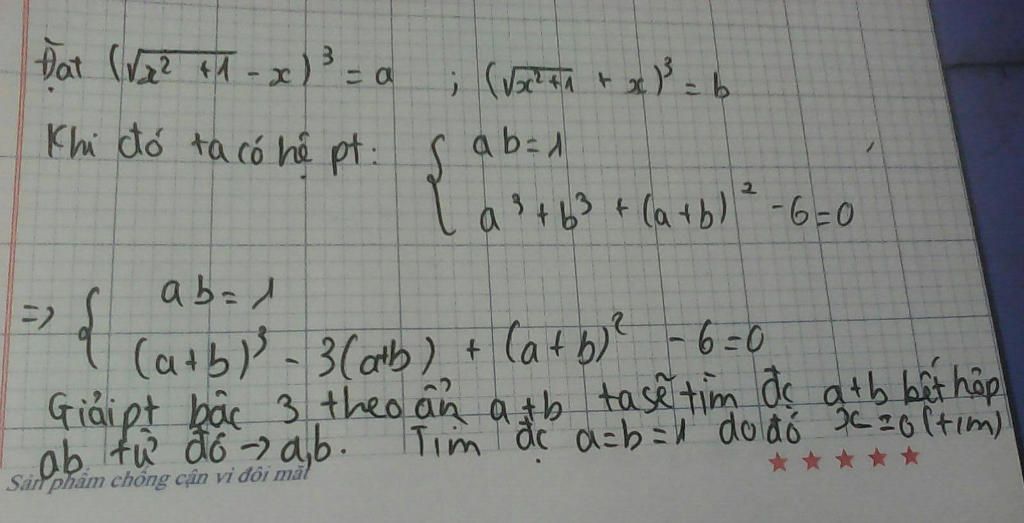 Đặt (√x² +1 - x)³ = a ; (√x²+1 + x)³ = b
Khi đó ta có hệ pt: { ab = 1
a³ + b³ + (a+b)² - 6 = 0
=> { ab = 1
(a+b)³ - 3(a+b) + (a+b)² - 6 = 0
Giải pt bậc 3 theo ẩn a+b ta sẽ tìm đc a+b kết hợp
ab từ đó → a,b. Tìm đc a=b=1 do đó x=0 (+tm)
Sản phẩm chống cận vì đôi mắt